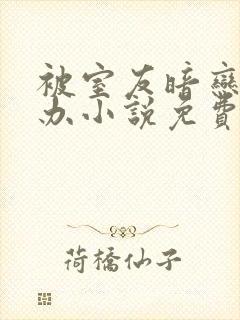 被室友暗戀
办小說免費
荷橋仙子